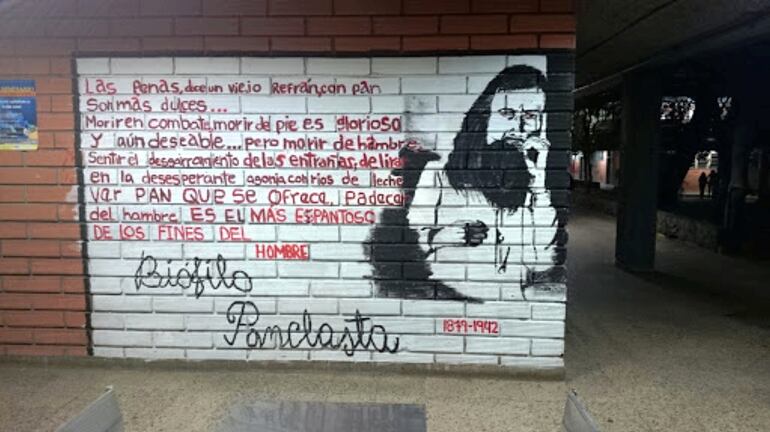 Las Penas, dice un viejo Refrán, con pan
Son más dulces...
Morir en combate, morir de pie es glorioso
Y aún deseable... pero morir de hambre,
Sentir el desgarramiento de las entrañas, delirar
en la desesperante agonía con rios de leche
PAN QUE SE Ofrece, Padecer
del hambre, ES EL MÁS ESPANTOSO
DE LOS FINES DEL
HOMBRE
Biófilo
Panclasta
1879-1942